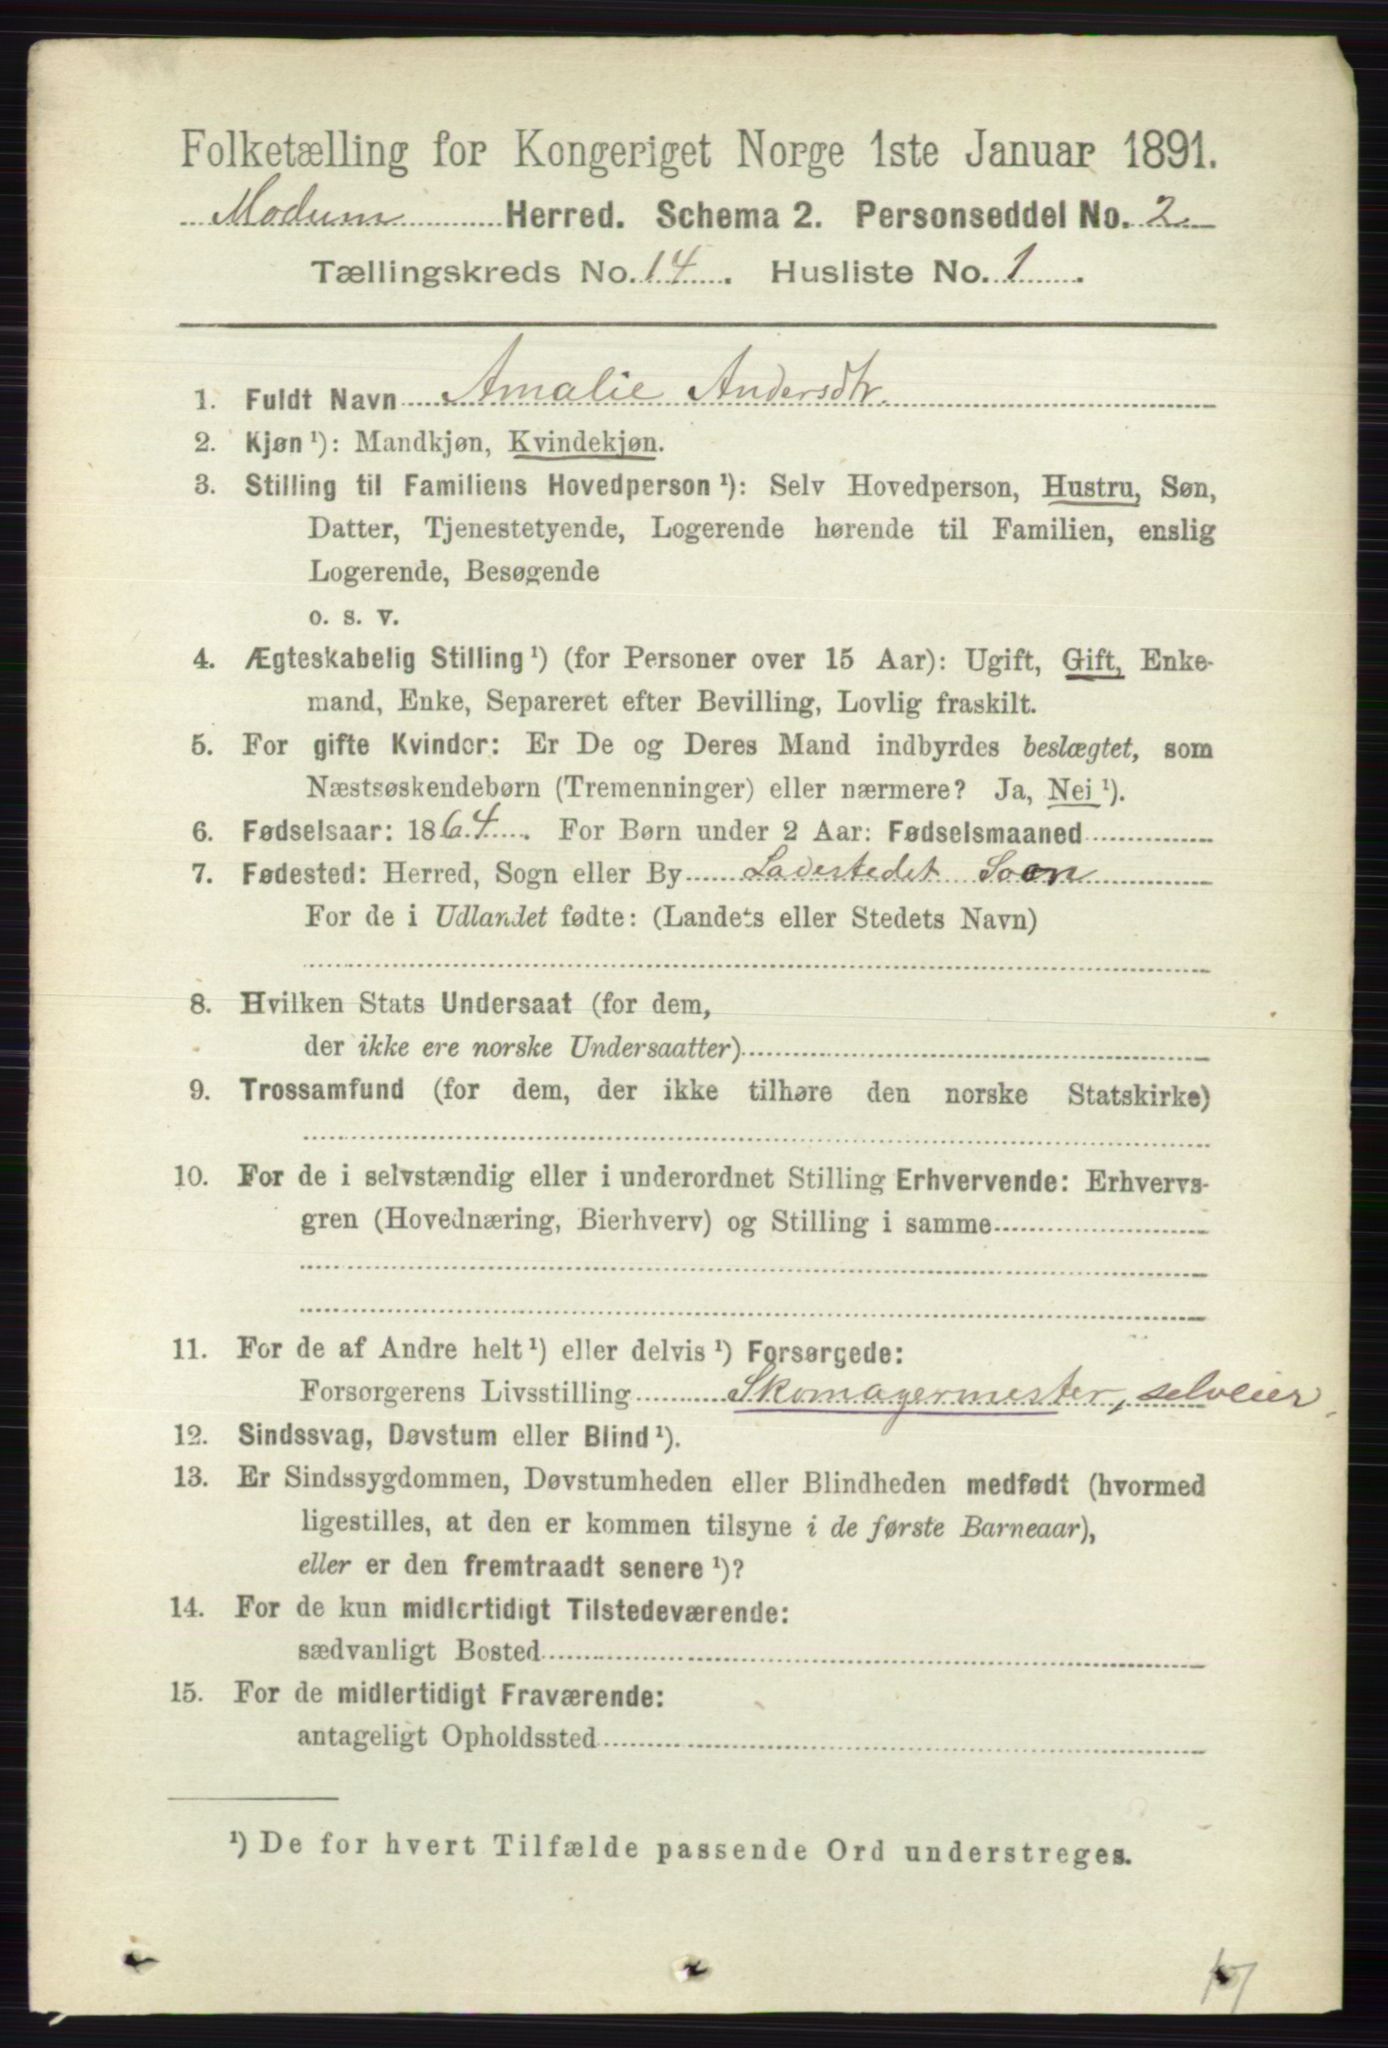 Folketælling for Kongeriget Norge 1ste Januar 1891.
Modum Herred. Schema 2. Personseddel No. 2.
Tællingskreds No. 14. Husliste No. 1.
1. Fuldt Navn Amalie Andersdtr.
2. Kjøn ¹): Mandkjøn, Kvindekjøn.
3. Stilling til Familiens Hovedperson ¹): Selv Hovedperson, Hustru, Søn,
Datter, Tjenestetyende, Logerende hørende til Familien, enslig
Logerende, Besøgende
o. s. v.
4. Ægteskabelig Stilling ¹) (for Personer over 15 Aar): Ugift, Gift, Enke-
mand, Enke, Separeret efter Bevilling, Lovlig fraskilt.
5. For gifte Kvinder: Er De og Deres Mand indbyrdes beslægtet, som
Næstsøskendebørn (Tremenninger) eller nærmere? Ja, Nei ¹).
6. Fødselsaar: 1864. For Børn under 2 Aar: Fødselsmaaned
7. Fødested: Herred, Sogn eller By Ladestedet Soon
For de i Udlandet fødte: (Landets eller Stedets Navn)
8. Hvilken Stats Undersaat (for dem,
der ikke ere norske Undersaatter)
9. Trossamfund (for dem, der ikke tilhøre den norske Statskirke)
10. For de i selvstændig eller i underordnet Stilling Erhvervende: Erhvervs-
gren (Hovednæring, Bierhverv) og Stilling i samme
11. For de af Andre helt ¹) eller delvis ¹) Forsørgede:
Forsørgerens Livsstilling Skomagermester, selveier
12. Sindssvag, Døvstum eller Blind ¹).
13. Er Sindssygdommen, Døvstumheden eller Blindheden medfødt (hvormed
ligestilles, at den er kommen tilsyne i de første Barneaar),
eller er den fremtraadt senere ¹)?
14. For de kun midlertidigt Tilstedeværende:
sædvanligt Bosted
15. For de midlertidigt Fraværende:
antageligt Opholdssted
¹) De for hvert Tilfælde passende Ord understreges.
17